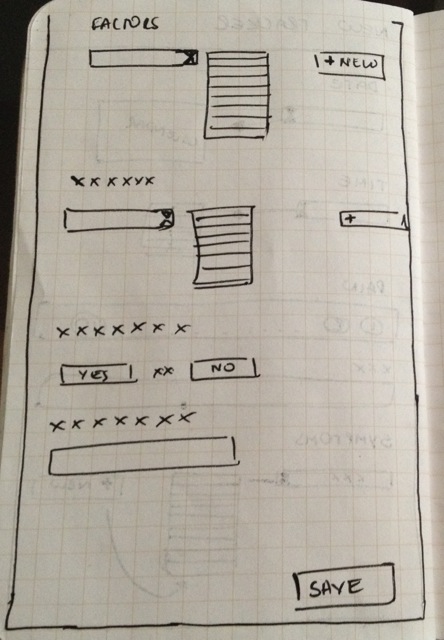 FACTORS
+ NEW
xxxxxx
+
xxxxxxx
YES xx NO
xxxxxxx
SAVE